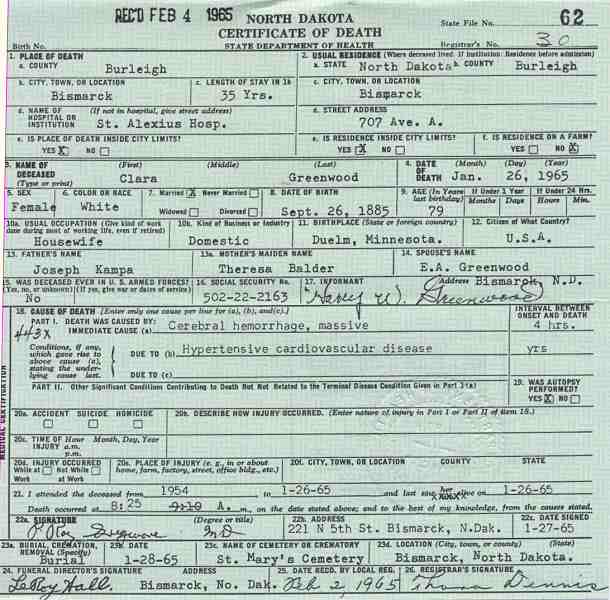 REC'D FEB 4 1965
NORTH DAKOTA
CERTIFICATE OF DEATH
STATE DEPARTMENT OF HEALTH
State File No. 62
Birth No.
Registrar's No. 30
1. PLACE OF DEATH
a. COUNTY Burleigh
2. USUAL RESIDENCE (Where deceased lived. If institution: Residence before admission)
a. STATE North Dakota b. COUNTY Burleigh
b. CITY, TOWN, OR LOCATION Bismarck
c. LENGTH OF STAY IN 1b 35 Yrs.
c. CITY, TOWN, OR LOCATION Bismarck
d. NAME OF HOSPITAL OR INSTITUTION (If not in hospital, give street address) St. Alexius Hosp.
d. STREET ADDRESS 707 Ave. A
e. IS PLACE OF DEATH INSIDE CITY LIMITS? YES X NO
e. IS RESIDENCE INSIDE CITY LIMITS? YES X NO
f. IS RESIDENCE ON A FARM? YES NO X
3. NAME OF DECEASED (Type or print) (First) Clara (Middle) (Last) Greenwood
4. DATE OF DEATH (Month) (Day) (Year) Jan. 26, 1965
5. SEX Female
6. COLOR OR RACE White
7. Married X Never Married
Widowed Divorced
8. DATE OF BIRTH Sept. 26, 1885
9. AGE (In Years last birthday) 79
If Under 1 Year Months Days
If Under 24 Hrs. Hours Min.
10a. USUAL OCCUPATION (Give kind of work done during most of working life, even if retired) Housewife
10b. Kind of Business or Industry Domestic
11. BIRTHPLACE (State or foreign country) Duelm, Minnesota.
12. Citizen of What Country? U.S.A.
13. FATHER'S NAME Joseph Kampa
13a. MOTHER'S MAIDEN NAME Theresa Balder
14. SPOUSE'S NAME E.A. Greenwood
15. WAS DECEASED EVER IN U.S. ARMED FORCES? (Yes, no, or unknown) (If yes, give war or dates of service) No
16. SOCIAL SECURITY No. 502-22-2163
17. INFORMANT Harry W. Greenwood Address Bismarck, N.D.
18. CAUSE OF DEATH [Enter only one cause per line for (a), (b), and (c).]
INTERVAL BETWEEN ONSET AND DEATH
PART I. DEATH WAS CAUSED BY:
IMMEDIATE CAUSE (a) Cerebral hemorrhage, massive 4 hrs.
443X
Conditions, if any, which gave rise to above cause (a), stating the underlying cause last.
DUE TO (b) Hypertensive cardiovascular disease yrs
DUE TO (c)
PART II. Other Significant Conditions Contributing to Death But Not Related to the Terminal Disease Condition Given in Part I(a)
19. WAS AUTOPSY PERFORMED? YES X NO
MEDICAL CERTIFICATION
20a. ACCIDENT SUICIDE HOMICIDE
20b. DESCRIBE HOW INJURY OCCURRED. (Enter nature of injury in Part I or Part II of item 18.)
20c. TIME OF INJURY Hour a.m. p.m. Month, Day, Year
20d. INJURY OCCURRED While at Work Not While at Work
20e. PLACE OF INJURY (e. g., in or about home, farm, factory, street, office bldg., etc.)
20f. CITY, TOWN, OR LOCATION COUNTY STATE
21. I attended the deceased from 1954 to 1-26-65 and last saw her alive on 1-26-65
Death occurred at 8:25 9:10 A. m., on the date stated above; and to the best of my knowledge, from the causes stated.
22a. SIGNATURE (Degree or title) MD
22b. ADDRESS 221 N 5th St. Bismarck, N.Dak.
22c. DATE SIGNED 1-27-65
23a. BURIAL, CREMATION, REMOVAL (Specify) Burial
23b. DATE 1-28-65
23c. NAME OF CEMETERY OR CREMATORY St. Mary's Cemetery
23d. LOCATION (City, town, or county) (State) Bismarck, North Dakota.
24. FUNERAL DIRECTOR'S SIGNATURE LeRoy Hall. ADDRESS Bismarck, No. Dak.
25. DATE RECD. BY LOCAL REG. Feb 2, 1965
26. REGISTRAR'S SIGNATURE Thora Dennis